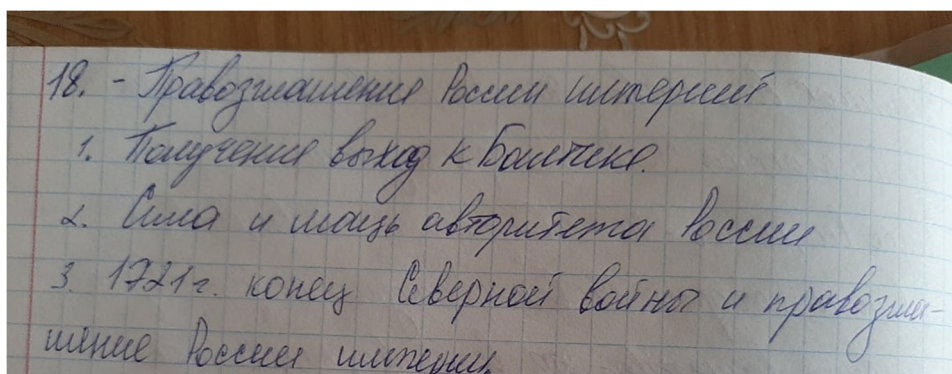 18. - Правозглашения России империей
1. Получения выход к Балтике.
2. Сила и мощь авторитета России
3. 1721г. конец Северной войны и правозгла-
шение России империи.